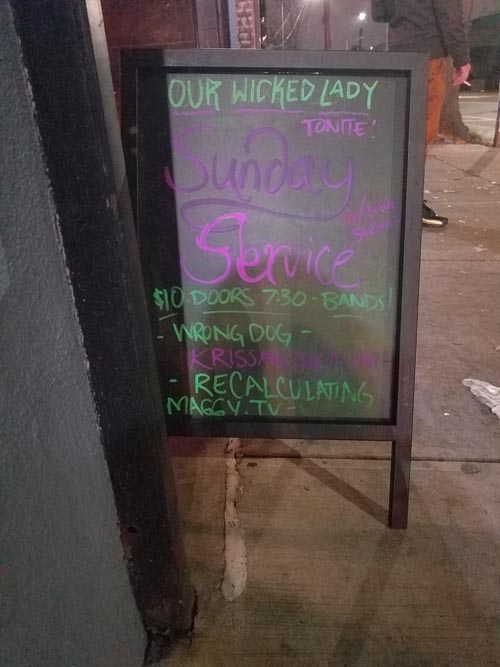 OUR WICKED LADY
TONITE!
Sunday
Service
$10 · DOORS 7:30 · BANDS!
- WRONG DOG -
- RECALCULATING
MAGGY.TV -